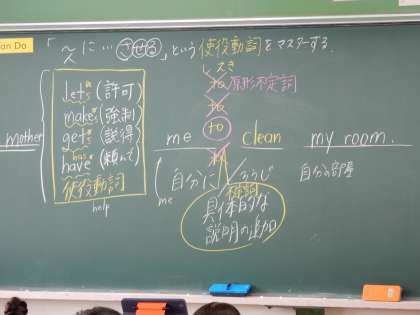 an Do
「～に…させる」という使役動詞をマスターする。
let's (許可)
make's (強制)
get's (説得)
has
have (頼んで)
使役動詞
help
mother
原形不定詞
to
to
me clean my room.
me
自分に
そうじ
自分の部屋
具体的な
説明の追加